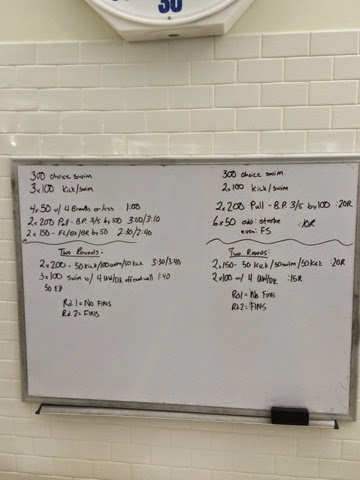 30
300 choice swim
3x100 Kick/swim
4x50 w/ 4 Breaths or less 1:00
2x200 Pull - B.P. 3/5 by 100 3:00/3:10
2x150 - FL/BK/BR by 50 2:30/2:40
Two Rounds:
2x200 - 50 Kick/100 swim/50 Kick 3:30/3:40
3x100 swim w/ 4 off each wall 1:40
50 EZ
Rd. 1 = No FINS
Rd. 2 = FINS
300 choice swim
2x100 Kick/swim
2x200 Pull - B.P. 3/5 by 100 :20R
6x50 odd: stroke :10R
even: FS
Two Rounds:
2x150 - 50 Kick/50 swim/50 Kick :20R
2x100 w/ 4 :15R
Rd. 1 = No FINS
Rd. 2 = FINS